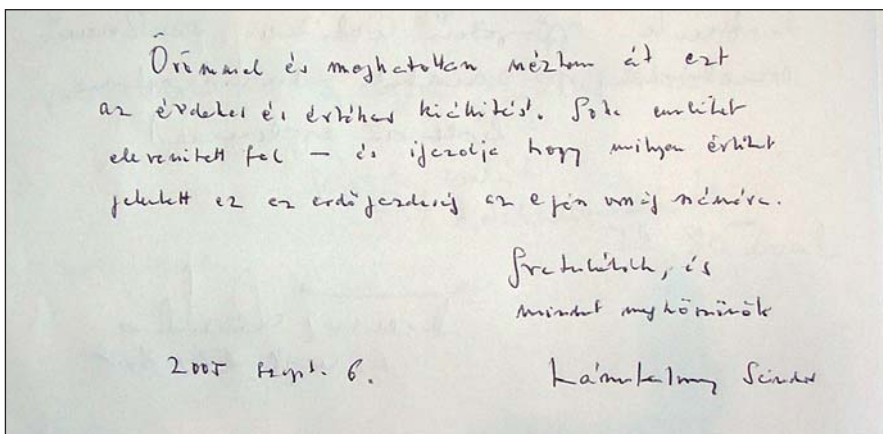 Örömmel és meghatottan néztem át ezt
az érdekes és értékes kiállítást. Sok emléket
elevenített fel – és igazolja hogy milyen értéket
jelentett ez az erdőgazdaság az egész ország számára.
Gratulálok, és
mindent megköszönök
2005 szept. 6.
Sándor